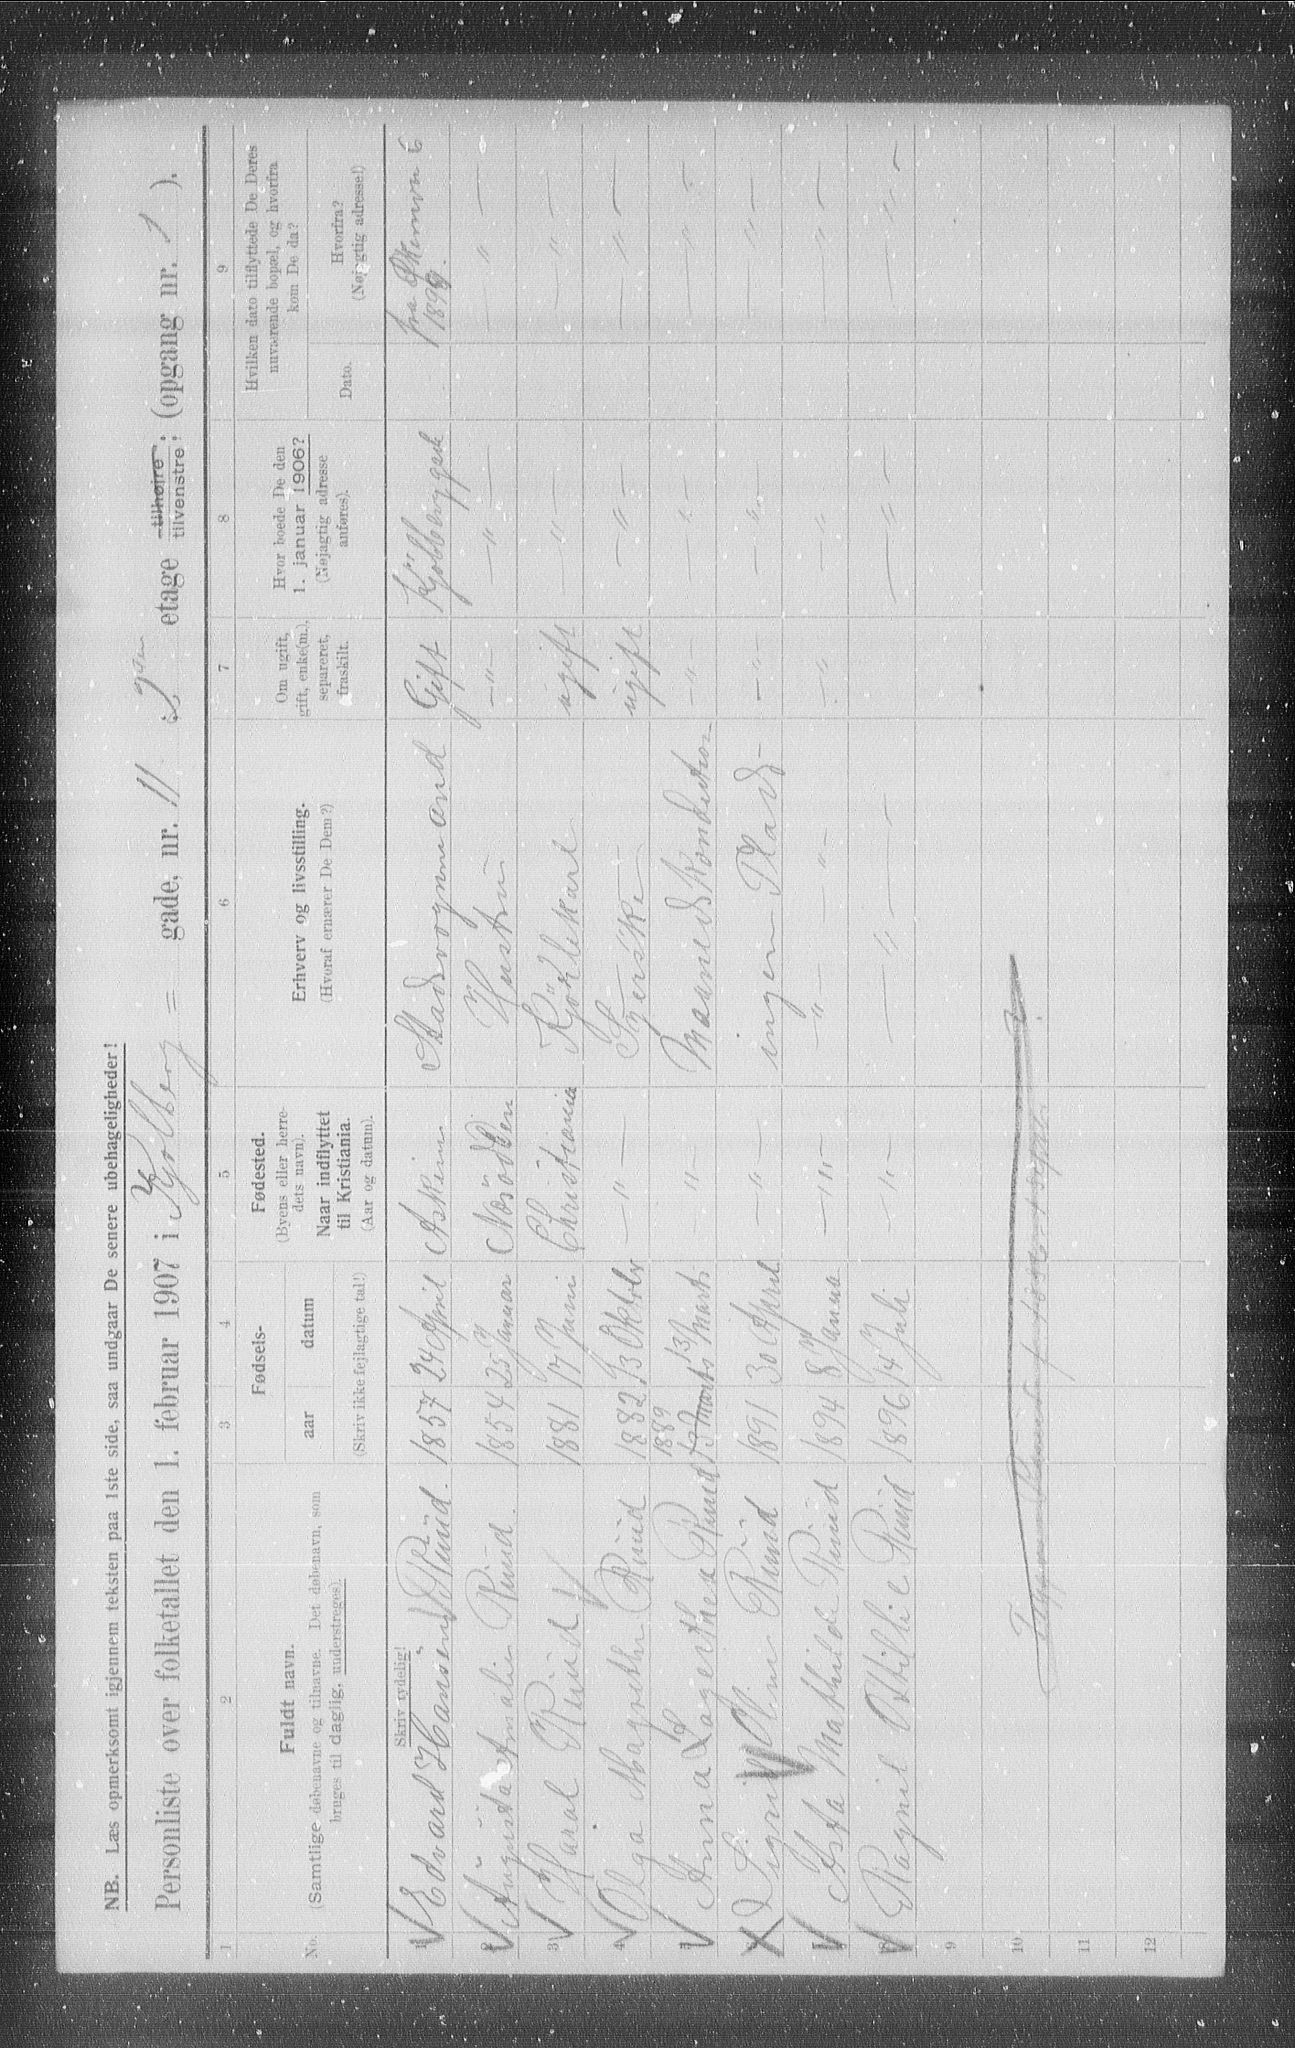 NB. Læs opmerksomt igjennem teksten paa 1ste side, saa undgaar De senere ubehageligheder!
Personliste over folketallet den 1. februar 1907 i Kjølberg = gade, nr. 11 2den etage tilhøire, tilvenstre, (opgang nr. 1 ).
1 2 3 4 5 6 7 8 9
No.
Fuldt navn.
(Samtlige døbenavne og tilnavne. Det døbenavn, som
bruges til daglig, understreges).
Fødsels-
aar datum
(Skriv ikke fejlagtige tal!)
Fødested.
(Byens eller herre-
dets navn).
Naar indflyttet
til Kristiania.
(Aar og datum).
Erhverv og livsstilling.
(Hvoraf ernærer De Dem?)
Om ugift,
gift, enke(m.),
separeret,
fraskilt.
Hvor boede De den
1. januar 1906?
(Nøjagtig adresse
anføres).
Hvilken dato tilflyttede De Deres
nuværende bopæl, og hvorfra
kom De da?
Dato.
Hvorfra?
(Nøjagtig adresse!)
Skriv tydelig!
1 Edvard Hansen Ruud. 1857 24 April Askim Gift fra 6
1899.
2 Augusta Amalie Ruud. 1854 25 Januar Næsodden Hustru — " — — " — — " —
3 Haral Ruud 1881 17 Juni Christiania Kjørlekarl ugift — " — — " —
4 Olga Magrethe Ruud 1882 13 Oktober — " — ugift — " — — " —
1889
5 Anna Lagerthea Ruud 13 Marts 13 Marts " — " — " — — " —
6 Sigri Oline Ruud 1891 30 April — " — ingen Plads — — " — — " — — " —
7 Asta Mathilde Ruud 1894 8 Janua — " — — " — — " — — " — — " — — " —
8 Ragnil Othilie Ruud 1896 14 Juli — " — — " — — " — — " —
9
10
11
12